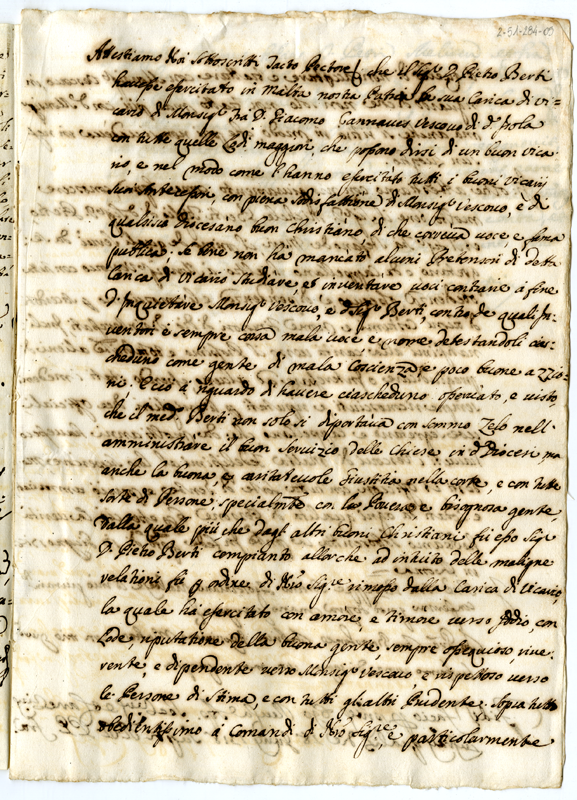 2-51-284-09
Attestiamo Noi sottoscritti Tacto Pectore che il Sig.r D. Pietro Berti
havesse esercitato in Malta nostra Patria la sua Carica di vi=
cario di Monsig.r Fra D. Giacomo Cannaves Vescovo di d.a Isola
con tutte quelle Lodi maggiori, che possono dirsi di un buon vica=
rio, e nel modo come l'hanno esercitato tutti i buoni Vicarij
suoi Antecessori, con piena sodisfattione di Monsig.r Vescovo, e di
qualsivo diocesano buon Christiano, di che correva voce e fama
publica; se bene non ha mancato alcuni Pretensori di detta
Carica di Vicario studiare, et inventare voci contrarie à fine
d'Inquietare Monsig.r Vescovo, e d.o Sig.r Berti, contro de quali In=
ventori è sempre corsa mala voce e nome detestandoli cias=
cheduno come gente di mala Coscienza e poco buone azzio=
ni; Ecciò à riguardo di havere ciascheduno osservato, e visto,
che il med.o Berti non solo si diportava con sommo Zelo nell'
amministrare il buon servizio delle Chiese in d.a Diocesi, ma
anche la buona, e caritatevole Giustitia nella corte, e con tutte
sorte di Persone, specialm.te con la Povera, e bisognosa gente,
dalla quale più che dagl'altri buoni Christiani fù esso Sig.r
D. Pietro Berti compianto allorche ad inducto delle maligne
relationi fù p ordine di N.ro Sig.re rimosso dalla Carica di Vicario,
la quale ha esercitato con amore, e timore verso Iddio, con
Lode, riputatione della buona gente sempre ossequioso, rive=
rente, e dipendente verso Monsig.r Vescovo e rispettoso verso
le Persone di Stima, e con tutti gl'altri Prudente. Sopra tutto
obedientissimo à Comandi di N.ro Sig.re, e particolarmente